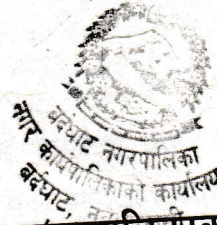 बर्दघाट नगरपालिका
नगर कार्यपालिकाको कार्यालय
बर्दघाट,